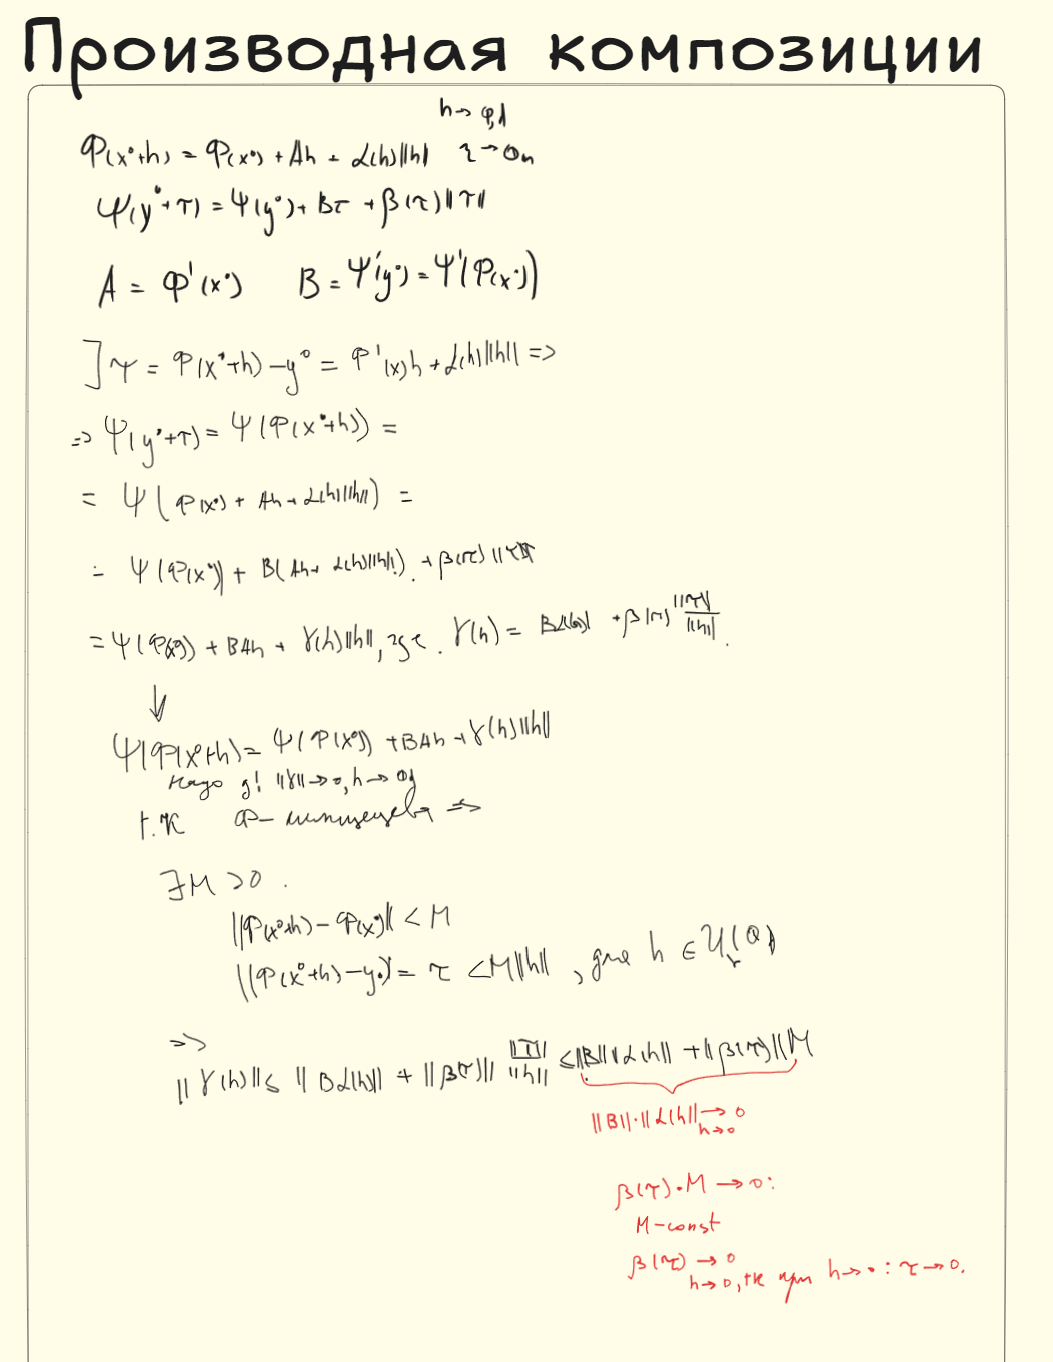 Производная композиции
h → 0_d
Φ(x°+h) = Φ(x°) + Ah + α(h)||h|| τ → 0_n
Ψ(y°+τ) = Ψ(y°) + Bτ + β(τ)||τ||
A = Φ'(x°) B = Ψ'(y°) = Ψ'(Φ(x°))
] τ = Φ(x°+h) - y° = Φ'(x)h + α(h)||h|| =>
=> Ψ(y°+τ) = Ψ(Φ(x°+h)) =
= Ψ(Φ(x°) + Ah + α(h)||h||) =
= Ψ(Φ(x°)) + B(Ah + α(h)||h||) + β(τ)||τ||
= Ψ(Φ(x°)) + BAh + γ(h)||h||, где γ(h) = Bα(h) + β(τ) ||τ||/||h||.
↓
Ψ(Φ(x°+h) = Ψ(Φ(x°)) + BAh + γ(h)||h||
Надо д! ||γ|| → 0, h → 0_d
т.к Φ - липшицева =>
∃M > 0.
||Φ(x°+h) - Φ(x°)|| < M
||Φ(x°+h) - y°|| = τ < M||h||, для h ∈ U_r(0)
=>
||γ(h)|| ≤ ||Bα(h)|| + ||β(τ)|| ||τ||/||h|| ≤ ||B|| ||α(h)|| + ||β(τ)||M
||B||·||α(h)|| → 0
h→0
β(τ)·M → 0:
M-const
β(τ) → 0
h→0, тк при h → 0: τ → 0.